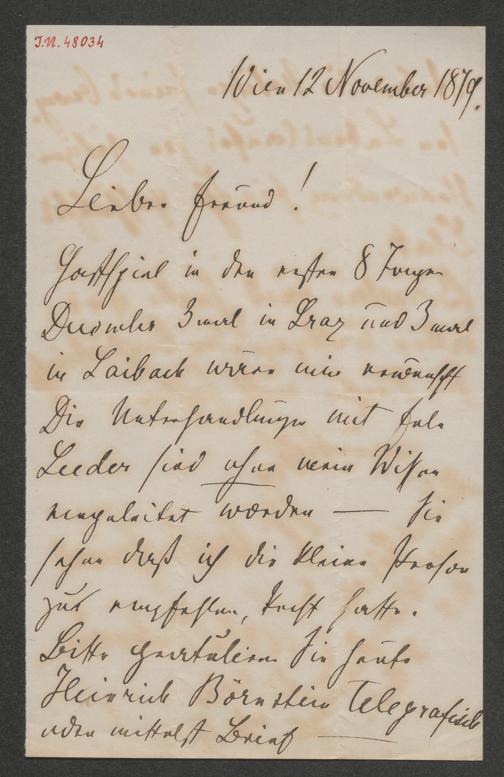 I.N. 48034
Wien 12 November 1879.
Lieber Freund!
Gastspiel in den ersten 8 Tagen
December 3 mal in Graz und 3 mal
in Laibach wäre mir erwünscht
Die Unterhandlungen mit Frln
Leeder sind ohne mein Wissen
eingeleitet worden — Sie
sehen daß ich die kleine Person
zu empfehlen, Recht hatte.
Bitte gratuliren Sie heute
Heinrich Börnstein Telegrafisch
oder mittelst Brief —